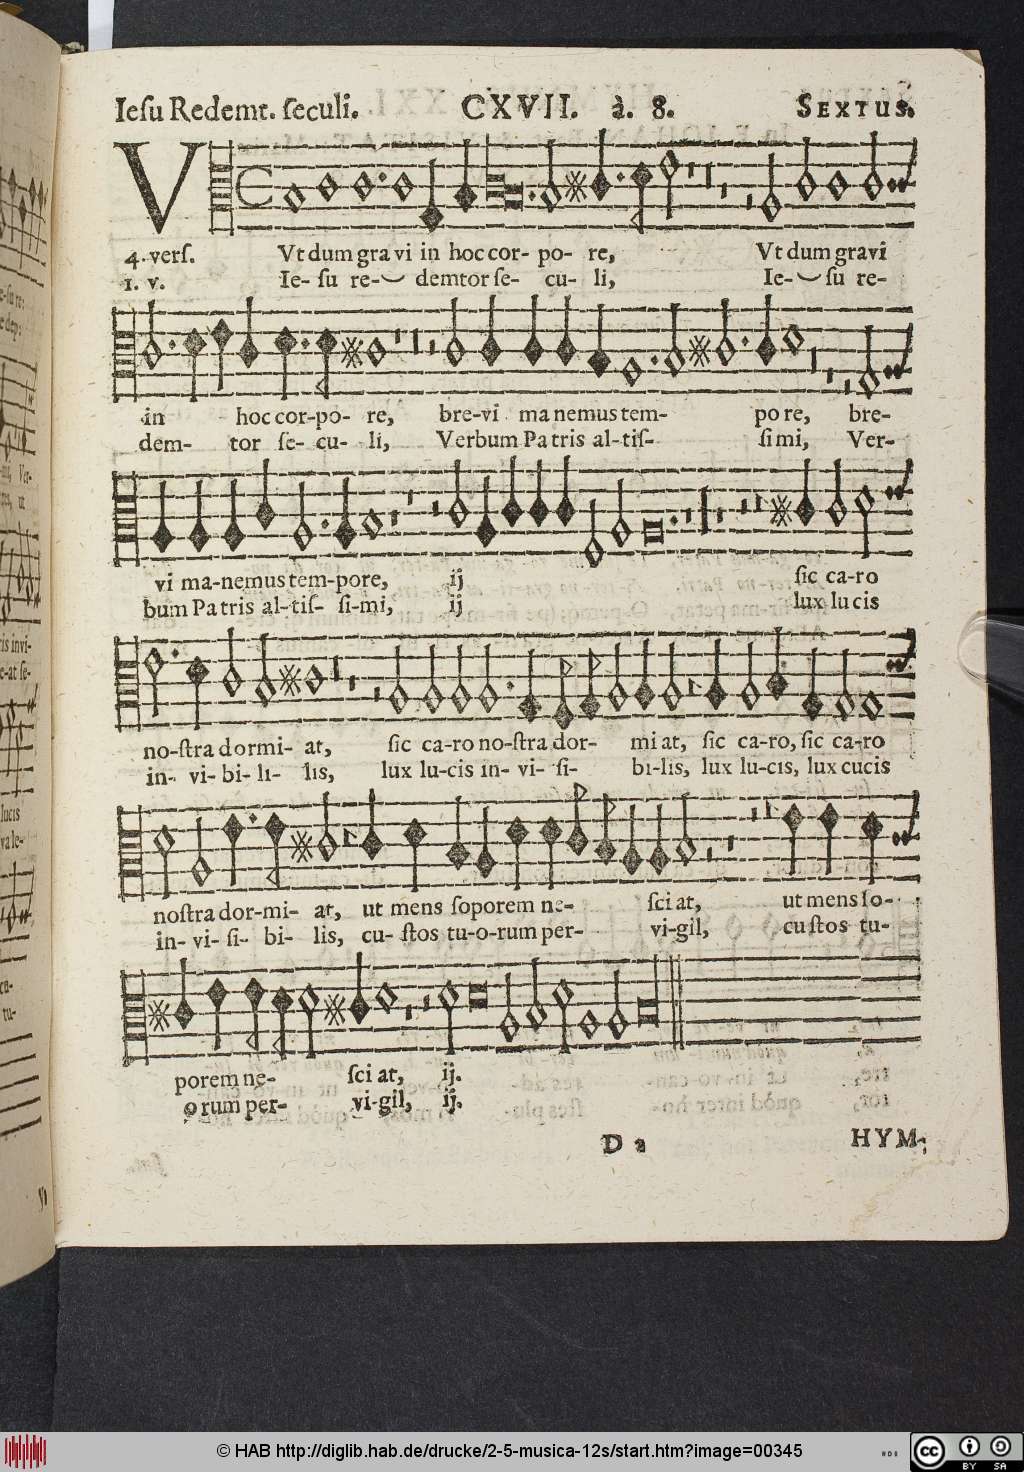 Ieſu Redemt. ſeculi. CXVII. à. 8. SEXTUS.
V
4. verſ. Vt dum gra vi in hoc cor- po- re, Vt dum gravi
1. v. Ie- ſu re- demtor ſe- cu- li, Ie- ſu re-
in hoc cor-po- re, bre-vi ma nemus tem- po re, bre-
dem- tor ſe- cu- li, Verbum Pa tris al-tiſ- ſi mi, Ver-
vi ma-nemus tem-pore, ij ſic ca-ro
bum Pa tris al-tiſ- ſi-mi, ij lux lu cis
no-ſtra dormi- at, ſic ca-ro no-ſtra dor- mi at, ſic ca-ro, ſic ca-ro
in- vi- bi- li- lis, lux lu-cis in- vi- ſi- bi-lis, lux lu-cis, lux cucis
noſtra dor-mi- at, ut mens ſoporem ne- ſci at, ut mens ſo-
in- vi- ſi- bi- lis, cu- ſtos tu-o-rum per- vi-gil, cu ſtos tu-
porem ne- ſci at, ij.
o rum per- vi-gil, ij.
D 2 HYM-
© HAB http://diglib.hab.de/drucke/2-5-musica-12s/start.htm?image=00345
CC BY SA